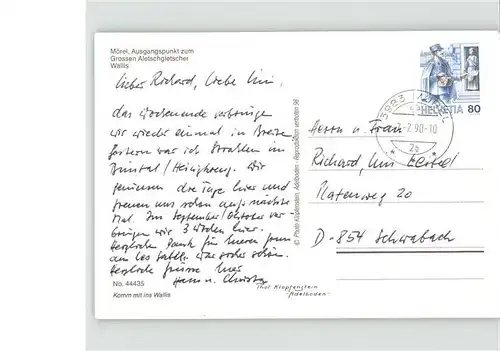 Mörel, Ausgangspunkt zum
Grossen Aletschgletscher
Wallis
Lieber Richard, liebe
das Wochenende verbringe
wir wieder einmal in Breiten
Gestern war ich Strahlen im
Binntal / Heiligkreuz. Wir
geniessen die Tage hier und
freuen uns schon aufs nächste
Mal. Im September/Oktober ver-
bringen wir 3 Wochen hier.
Herzlichen Dank für Euren
aus war schön.
Herzliche Grüsse Euer
Hans u. Christa
No. 44435
Komm mit ins Wallis
Thal Klopfenstein
Adelboden
© Photo Klopfenstein, Adelboden - Reproduktion verboten 98
HELVETIA 80
3983 MÖREL
2.90-10
Herrn u. Frau
Richard,
Ratenweg 20
D-854 Schwabach